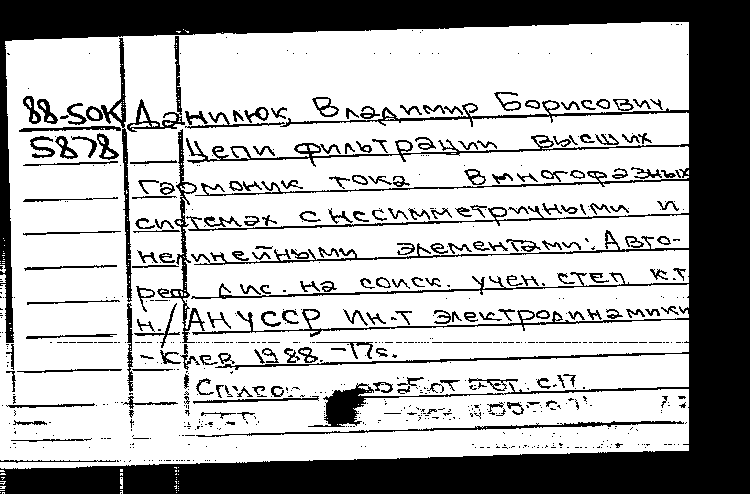 88-50К Данилюк, Владимир Борисович.
5878 Цепи фильтрации высших
гармоник тока в многофазных
системах с несимметричными и
нелинейными элементами: Авто-
реф. дис. на соиск. учен. степ к.т.
н./ АН УССР Ин-т электродинамики
- Киев, 1988. -17с.
Список от авт. с.17.